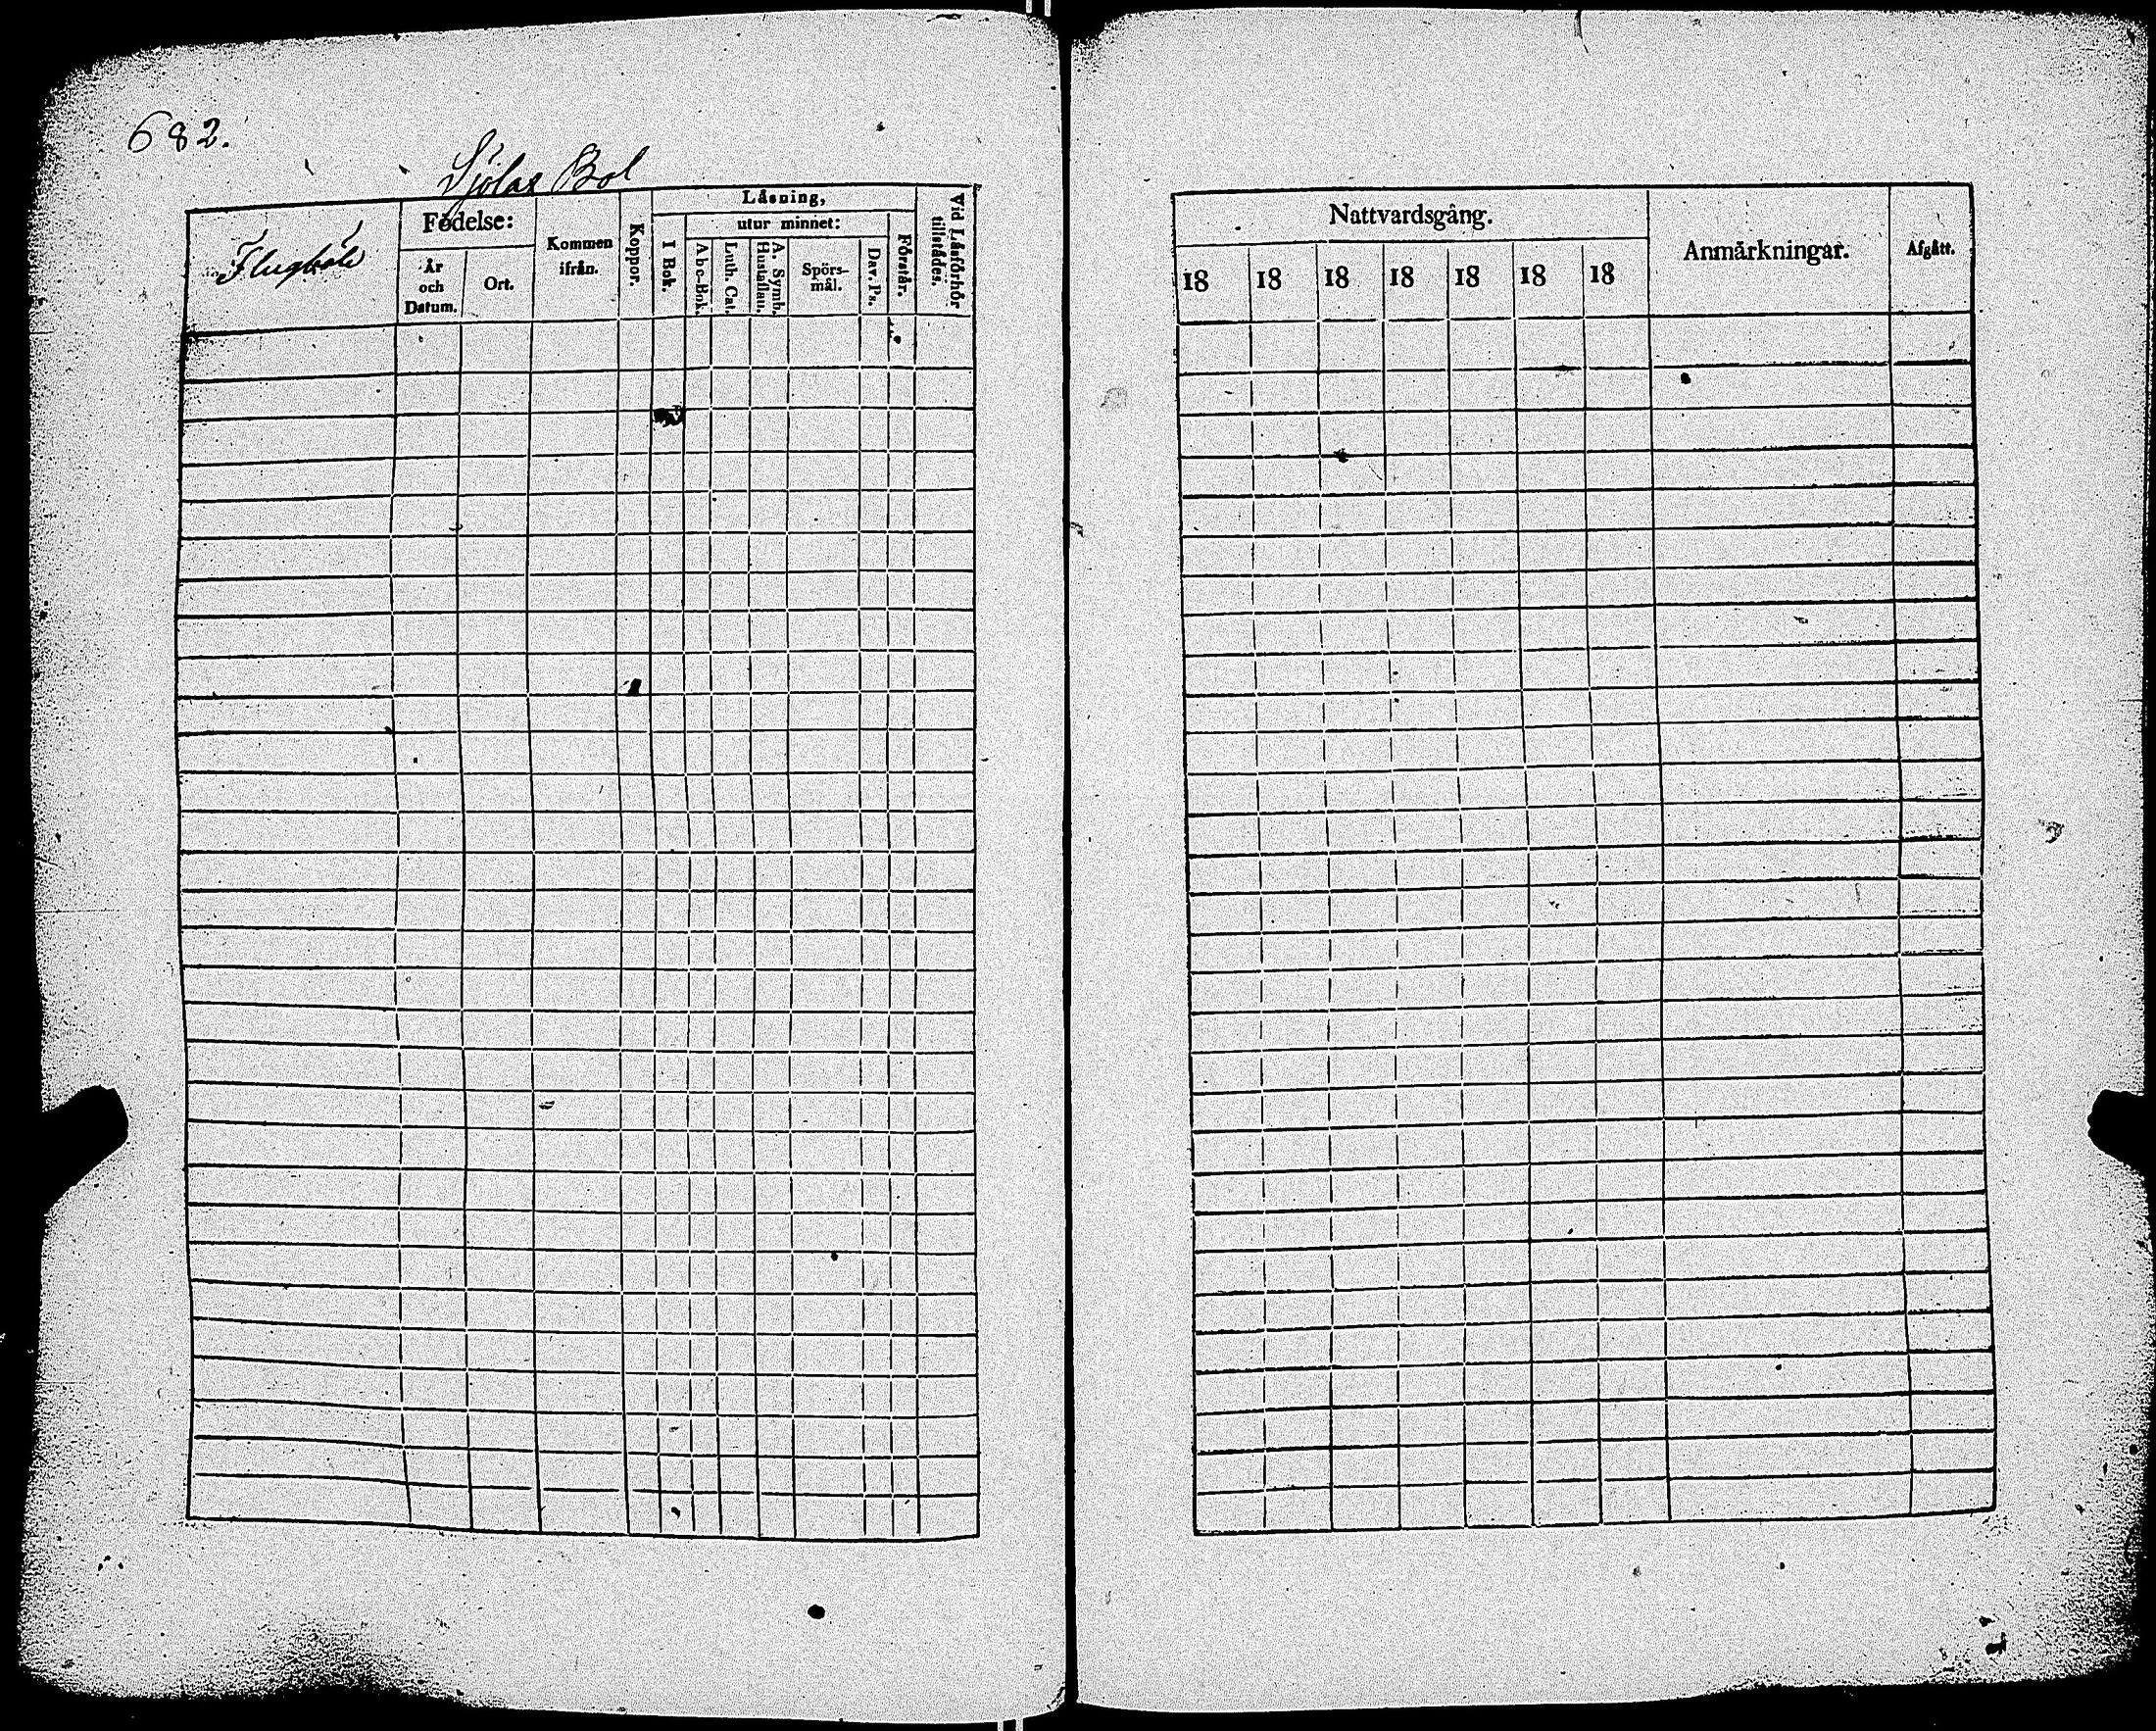 682.
Sjölax Bol
Flugböle
Födelse:
År
och
Datum.
Ort.
Kommen
ifrån.
Koppor.
Låsning,
I Bok.
utur minnet:
Abc-Bok.
Luth. Cat.
A. Symb.
Hustaflan.
Spörs-
mål.
Dav. Ps.
Förstår.
Vid Låsförhör
tillstådes.
Nattvardsgång.
18 18 18 18 18 18 18
Anmärkningar.
Afgått.